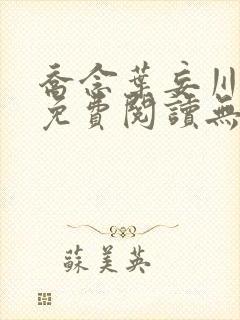 喬念葉妄川
免費閱讀無
蘇美英